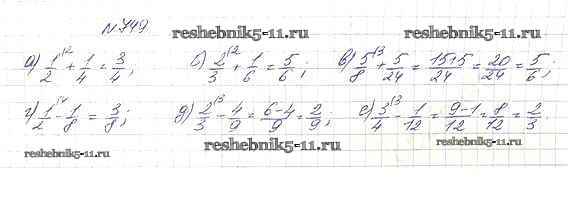 № 749
reshebnik5-11.ru reshebnik5-11.ru
а) 1/2^(12 + 1/4 = 3/4; б) 2/3^(12 + 1/6 = 5/6; в) 5/8^(13 + 5/24 = 15+5/24 = 20/24 = 5/6;
г) 1/2^(4 - 1/8 = 3/8; д) 2/3^(3 - 4/9 = 6-4/9 = 2/9; е) 3/4^(3 - 1/12 = 9-1/12 = 8/12 = 2/3.
reshebnik5-11.ru reshebnik5-11.ru reshebnik5-11.ru